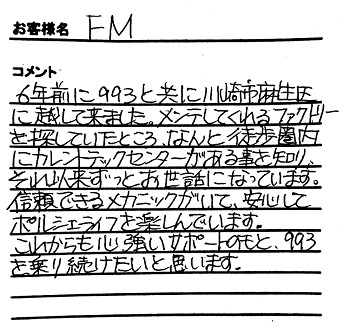 お客様名 F M
コメント
6年前に993と共に川崎市麻生区
に越して来ました。メンテしてくれるファクトリー
を探していたところ、なんと徒歩圏内
にカレントテックセンターがある事を知り、
それ以来ずっとお世話になっています。
信頼できるメカニックがいて、安心して
ポルシェライフを楽しんでいます。
これからも心強いサポートのもと、993
を乗り続けたいと思います。